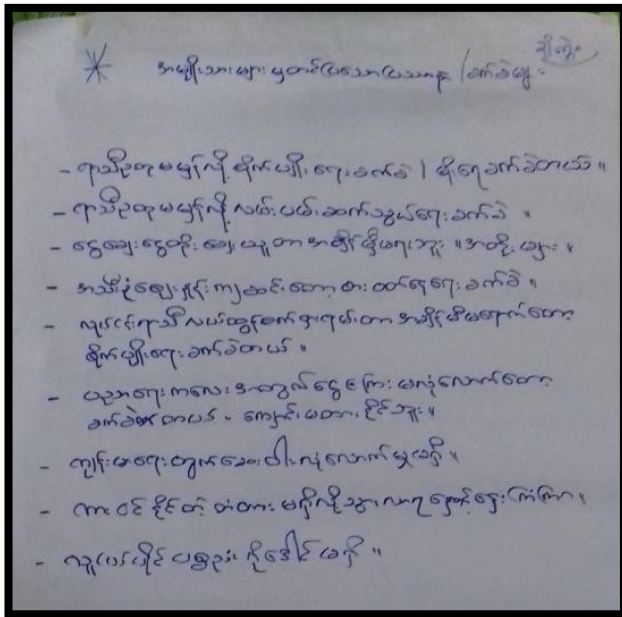 အမျိုးသားများမှတင်ပြသောပြဿနာ / အခက်အခဲများ
- ရာသီဥတုမမှန်လို့ စိုက်ပျိုးရေးခက်ခဲ / မိုးရေခက်ခဲတယ်။
- ရာသီဥတုမမှန်လို့ လမ်းပမ်းဆက်သွယ်ရေးခက်ခဲ ။
- ငွေချေးငွေတိုးချေးယူတာအချိန်မှီမရဘူး ။အတိုးများ ။
- အသီးနှံစျေးနှုန်းကျဆင်းတော့စားဝတ်နေရေးခက်ခဲ ။
- လုပ်ငန်းရာသီလယ်ထွန်စက်ငှားရမ်းတာအချိန်မီမရောက်တော့
စိုက်ပျိုးရေးခက်ခဲတယ် ။
- ပညာရေးကလေးအတွက်ငွေကြေးမလုံလောက်တော့
ခက်ခဲတယ် ။ ကျောင်းမထားနိုင်ဘူး။
- ကျန်းမာရေးတွက်ဆေးဝါးလုံလောက်မှုမရှိ ။
- ကားဝင်နိုင်တဲ့ တံတားမရှိလို့သွားလာရနှောင့်နှေးကြန့်ကြာ ။
- လူပိုင်ပစ္စည်းကိုခေါင်မရှိ ။